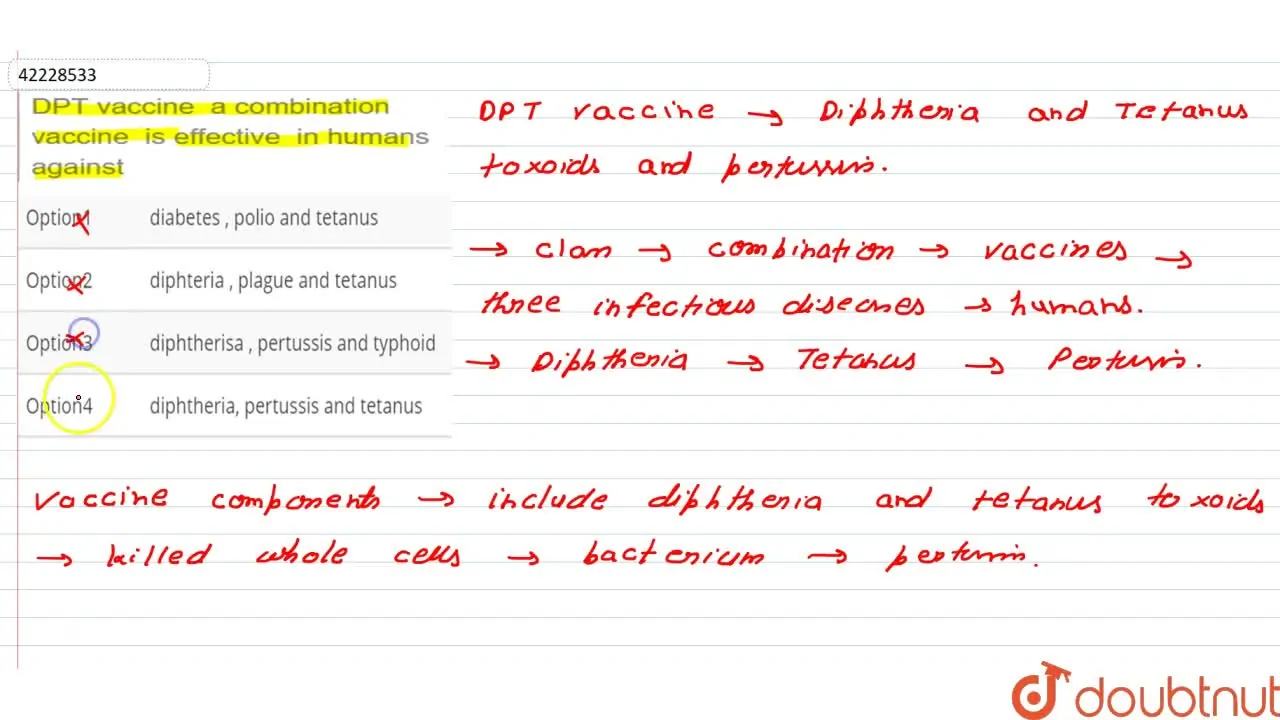 42228533
DPT vaccine a combination
vaccine is effective in humans
against
Option1 diabetes , polio and tetanus
Option2 diphteria , plague and tetanus
Option3 diphtherisa , pertussis and typhoid
Option4 diphtheria, pertussis and tetanus
DPT vaccine → Diphthenia and Tetanus
toxoids and pertussis.
→ clan → combination → vaccines →
three infectious diseases → humans.
→ Diphthenia → Tetanus → Pertussis.
vaccine components → include diphthenia and tetanus toxoids
→ killed whole cells → bacterium → pertussis.
doubtnut